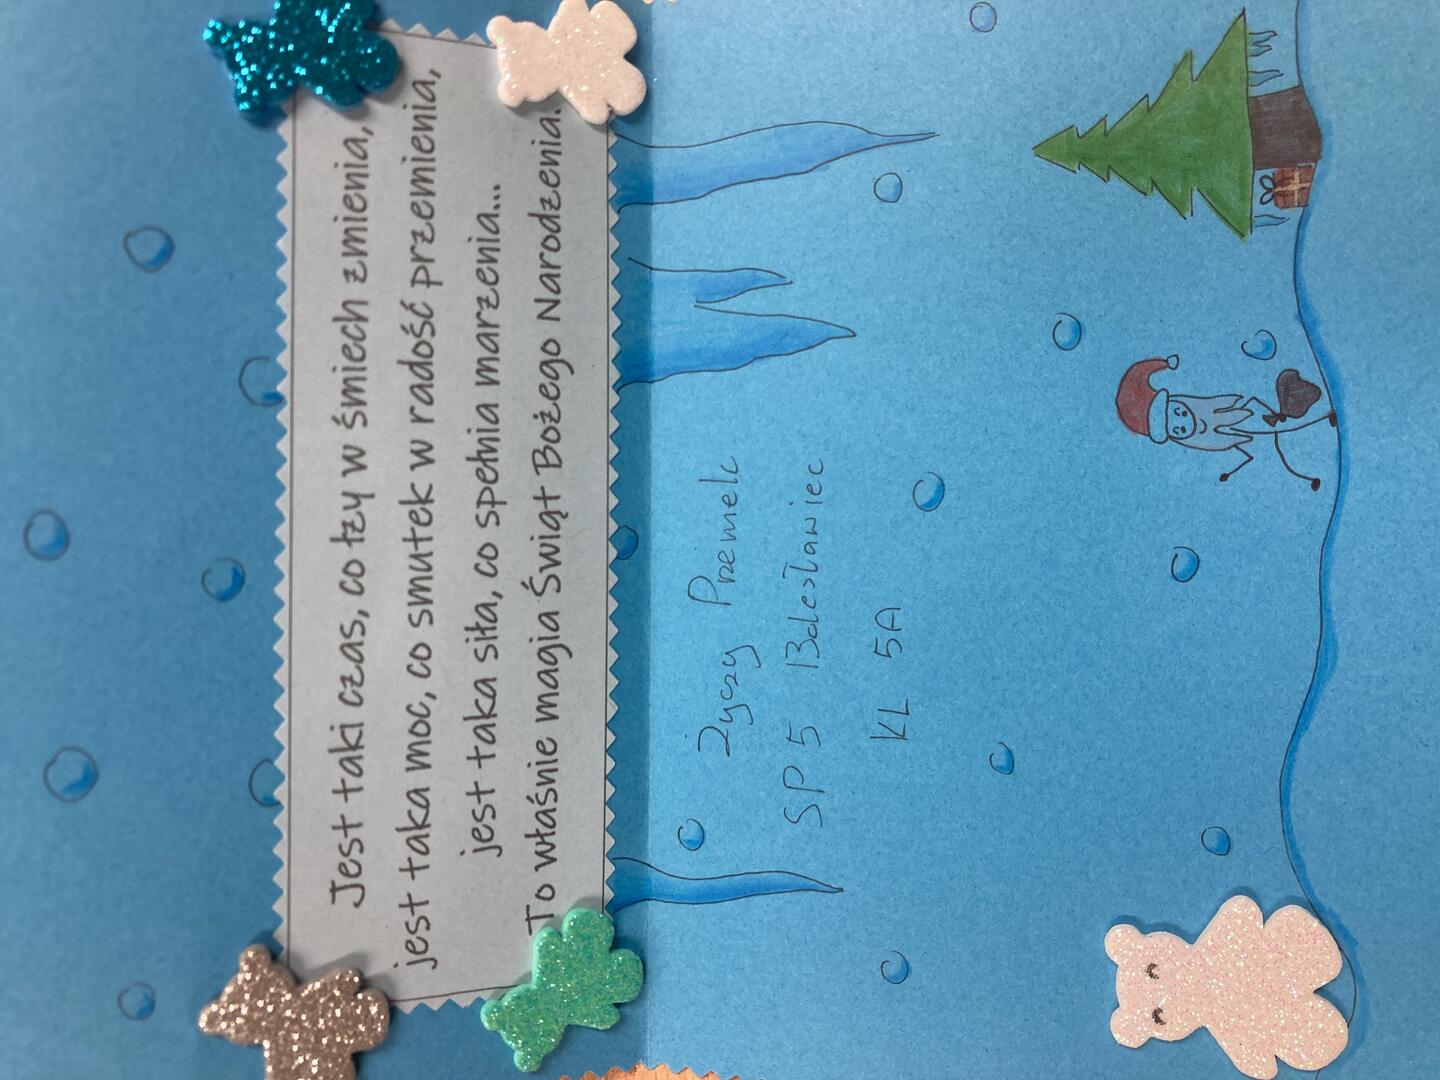 Jest taki czas, co łzy w śmiech zmienia,
jest taka moc, co smutek w radość przemienia,
jest taka siła, co spełnia marzenia...
To właśnie magia Świąt Bożego Narodzenia.
Życzy Przemek
SP 5 Bolesławiec
KL 5A